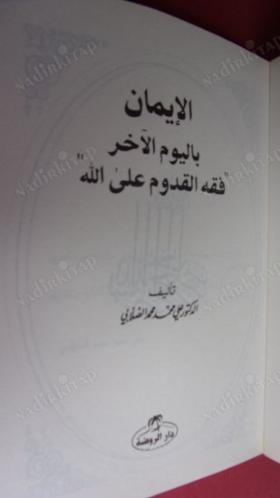 الإيمان
باليوم الآخر
"فقه القدوم على الله"
تأليف
الدكتور علي محمد محمد الصلابي
دار الروضة
NadirKitap